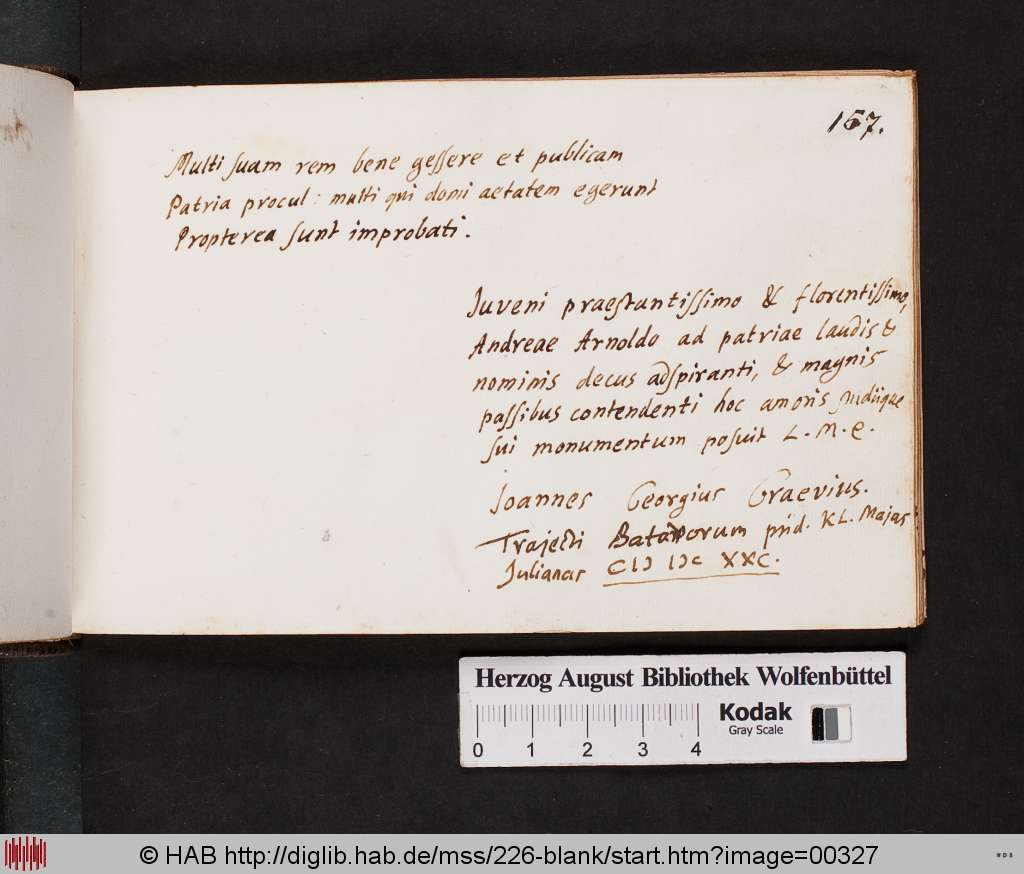 167.
Multi suam rem bene gessere et publicam
Patria procul: multi qui domi aetatem egerunt
Propterea sunt improbati.
Iuveni praestantissimo & florentissimo,
Andreae Arnoldo ad patriae laudis &
nominis decus adspiranti, & magnis
passibus contendenti hoc amoris studiique
sui monumentum posuit L. M. Q.
Ioannes Georgius Graevius.
Trajecti Batavorum prid. KL. Majas
Julianas CIↃ IↃC XXC.
Herzog August Bibliothek Wolfenbüttel
0 1 2 3 4
Kodak
Gray Scale
© HAB http://diglib.hab.de/mss/226-blank/start.htm?image=00327